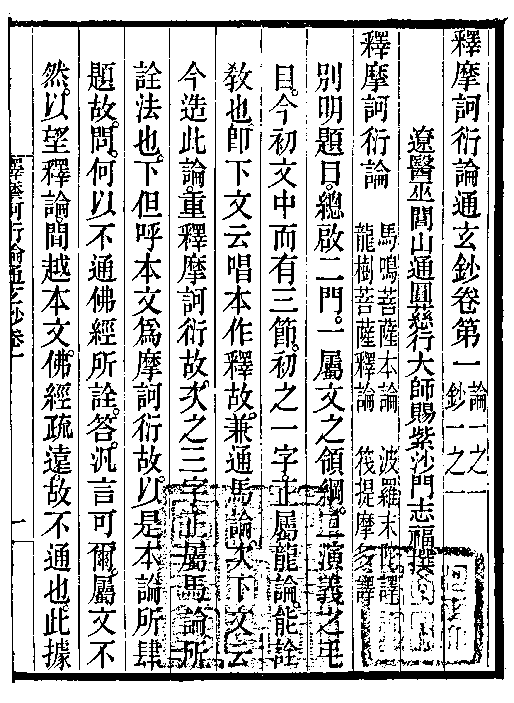 釋摩訶衍論通玄鈔卷第一 論一之 鈔一之一
遼醫巫閭山通圓慈行大師賜紫沙門志福撰
釋摩訶衍論 馬鳴菩薩本論 波羅末陀譯
龍樹菩薩釋論 筏提摩多譯
別明題目。總啟二門。一屬文之領綱。二演義之毛
目。今初文中而有三節。初之一字。正屬龍論。能詮
教也。卽下文云唱本作釋故。兼通馬論。次下文云
今造此論。重釋摩訶衍故。次之三字。正屬馬論所
詮法也。下但呼本文爲摩訶衍故。以是本論所肆
題故。問。何以不通佛經所詮。答。汎言可爾。屬文不
然。以望釋論。間越本文。佛經疏遠故不通也。此據
釋摩訶衍論通玄鈔卷一
一